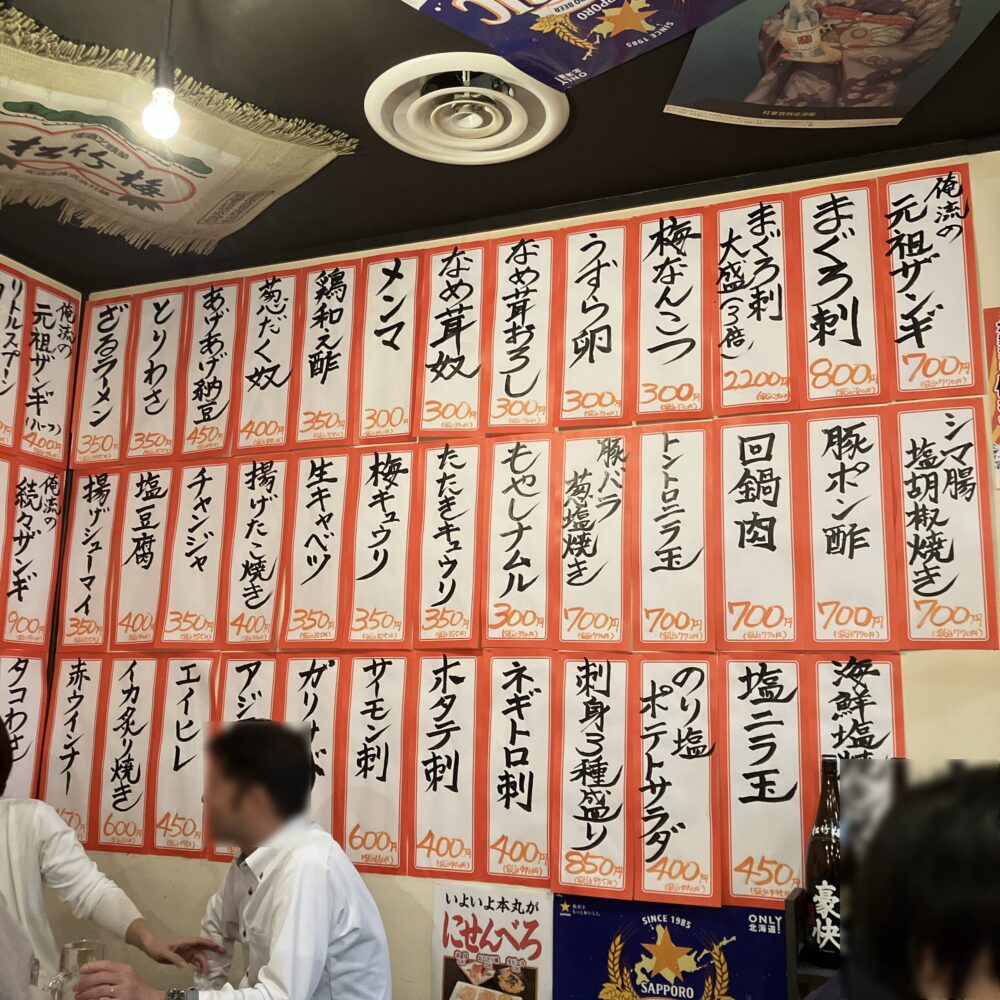 俺流の
元祖ザンギ
700円
(税込770円)
まぐろ刺
800円
まぐろ刺
大盛(3倍)
2200円
梅なんこつ
300円
うずら卵
300円
なめ茸おろし
300円
なめ茸奴
300円
メンマ
300円
鶏和え酢
350円
葱だく奴
400円
あげあげ納豆
450円
とりわさ
350円
ざるラーメン
350円
俺流の
元祖ザンギ
(ハーフ)
400円
リトルスプーン
シマ腸
塩胡椒焼き
700円
(税込770円)
豚ポン酢
700円
(税込770円)
回鍋肉
700円
(税込770円)
トントロニラ玉
700円
(税込770円)
豚バラ
葱塩焼き
700円
(税込770円)
もやしナムル
300円
たたきキュウリ
350円
梅キュウリ
350円
生キャベツ
350円
揚げたこ焼き
400円
チャンジャ
350円
塩豆腐
400円
揚げシューマイ
350円
俺流の
続々ザンギ
900円
海鮮塩焼
塩ニラ玉
450円
のり塩
ポテトサラダ
400円
刺身3種盛り
850円
ネギトロ刺
400円
ホタテ刺
400円
サーモン刺
600円
ガリサバ
アジ
エイヒレ
450円
イカ炙り焼き
600円
赤ウインナー
タコわさ
いよいよ本丸が
にせんべろ
SINCE 1985
ONLY
北海道!
SAPPORO
豪快
SAPPORO
SINCE 1985
ONLY
北海道!